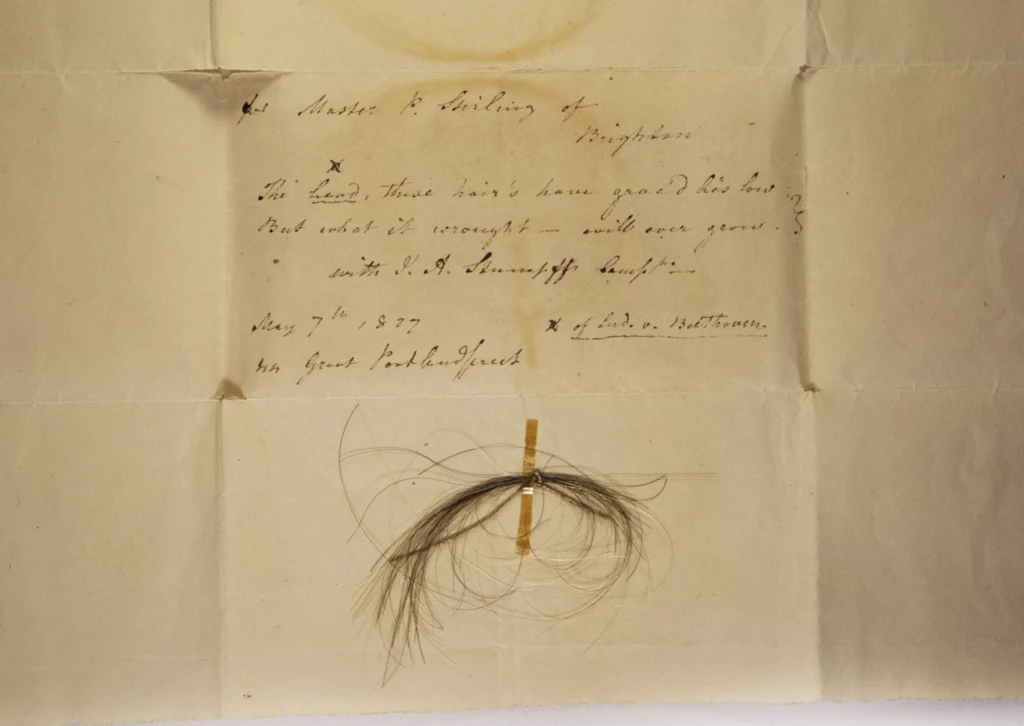 for Master P. Stirling of
Brighton
x
The head, these hair's have grac'd lies low
But what it wrought — will ever grow.
with J. A. Stumpffs Compts—
May 7th, 1827
x of Lud. v. Beethoven.
Great Portland Street